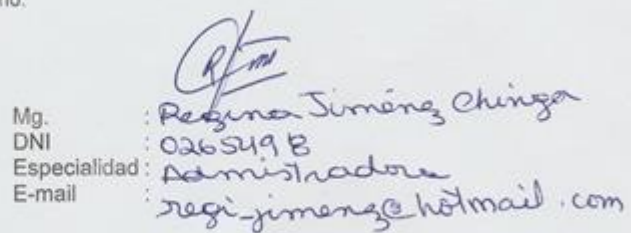 no.
Mg. : Regina Jiménez Chinga
DNI : 0265498
Especialidad : Administradora
E-mail : regi-jimenez@hotmail.com